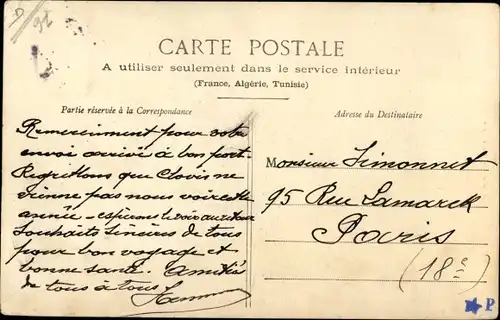 D
92
CARTE POSTALE
A utiliser seulement dans le service intérieur
(France, Algérie, Tunisie)
Partie réservée à la Correspondance
Remerciment pour votre
envoi arrivé à bon port.
Regrettons que Clovis ne
vienne pas nous voir cette
année – espérons le voir au retour
Souhaits sincères de tous
pour bon voyage et
bonne santé. Amitiés
de tous à tous
Adresse du Destinataire
Monsieur Simonnet
95 Rue Lamarck
Paris
(18e)
P